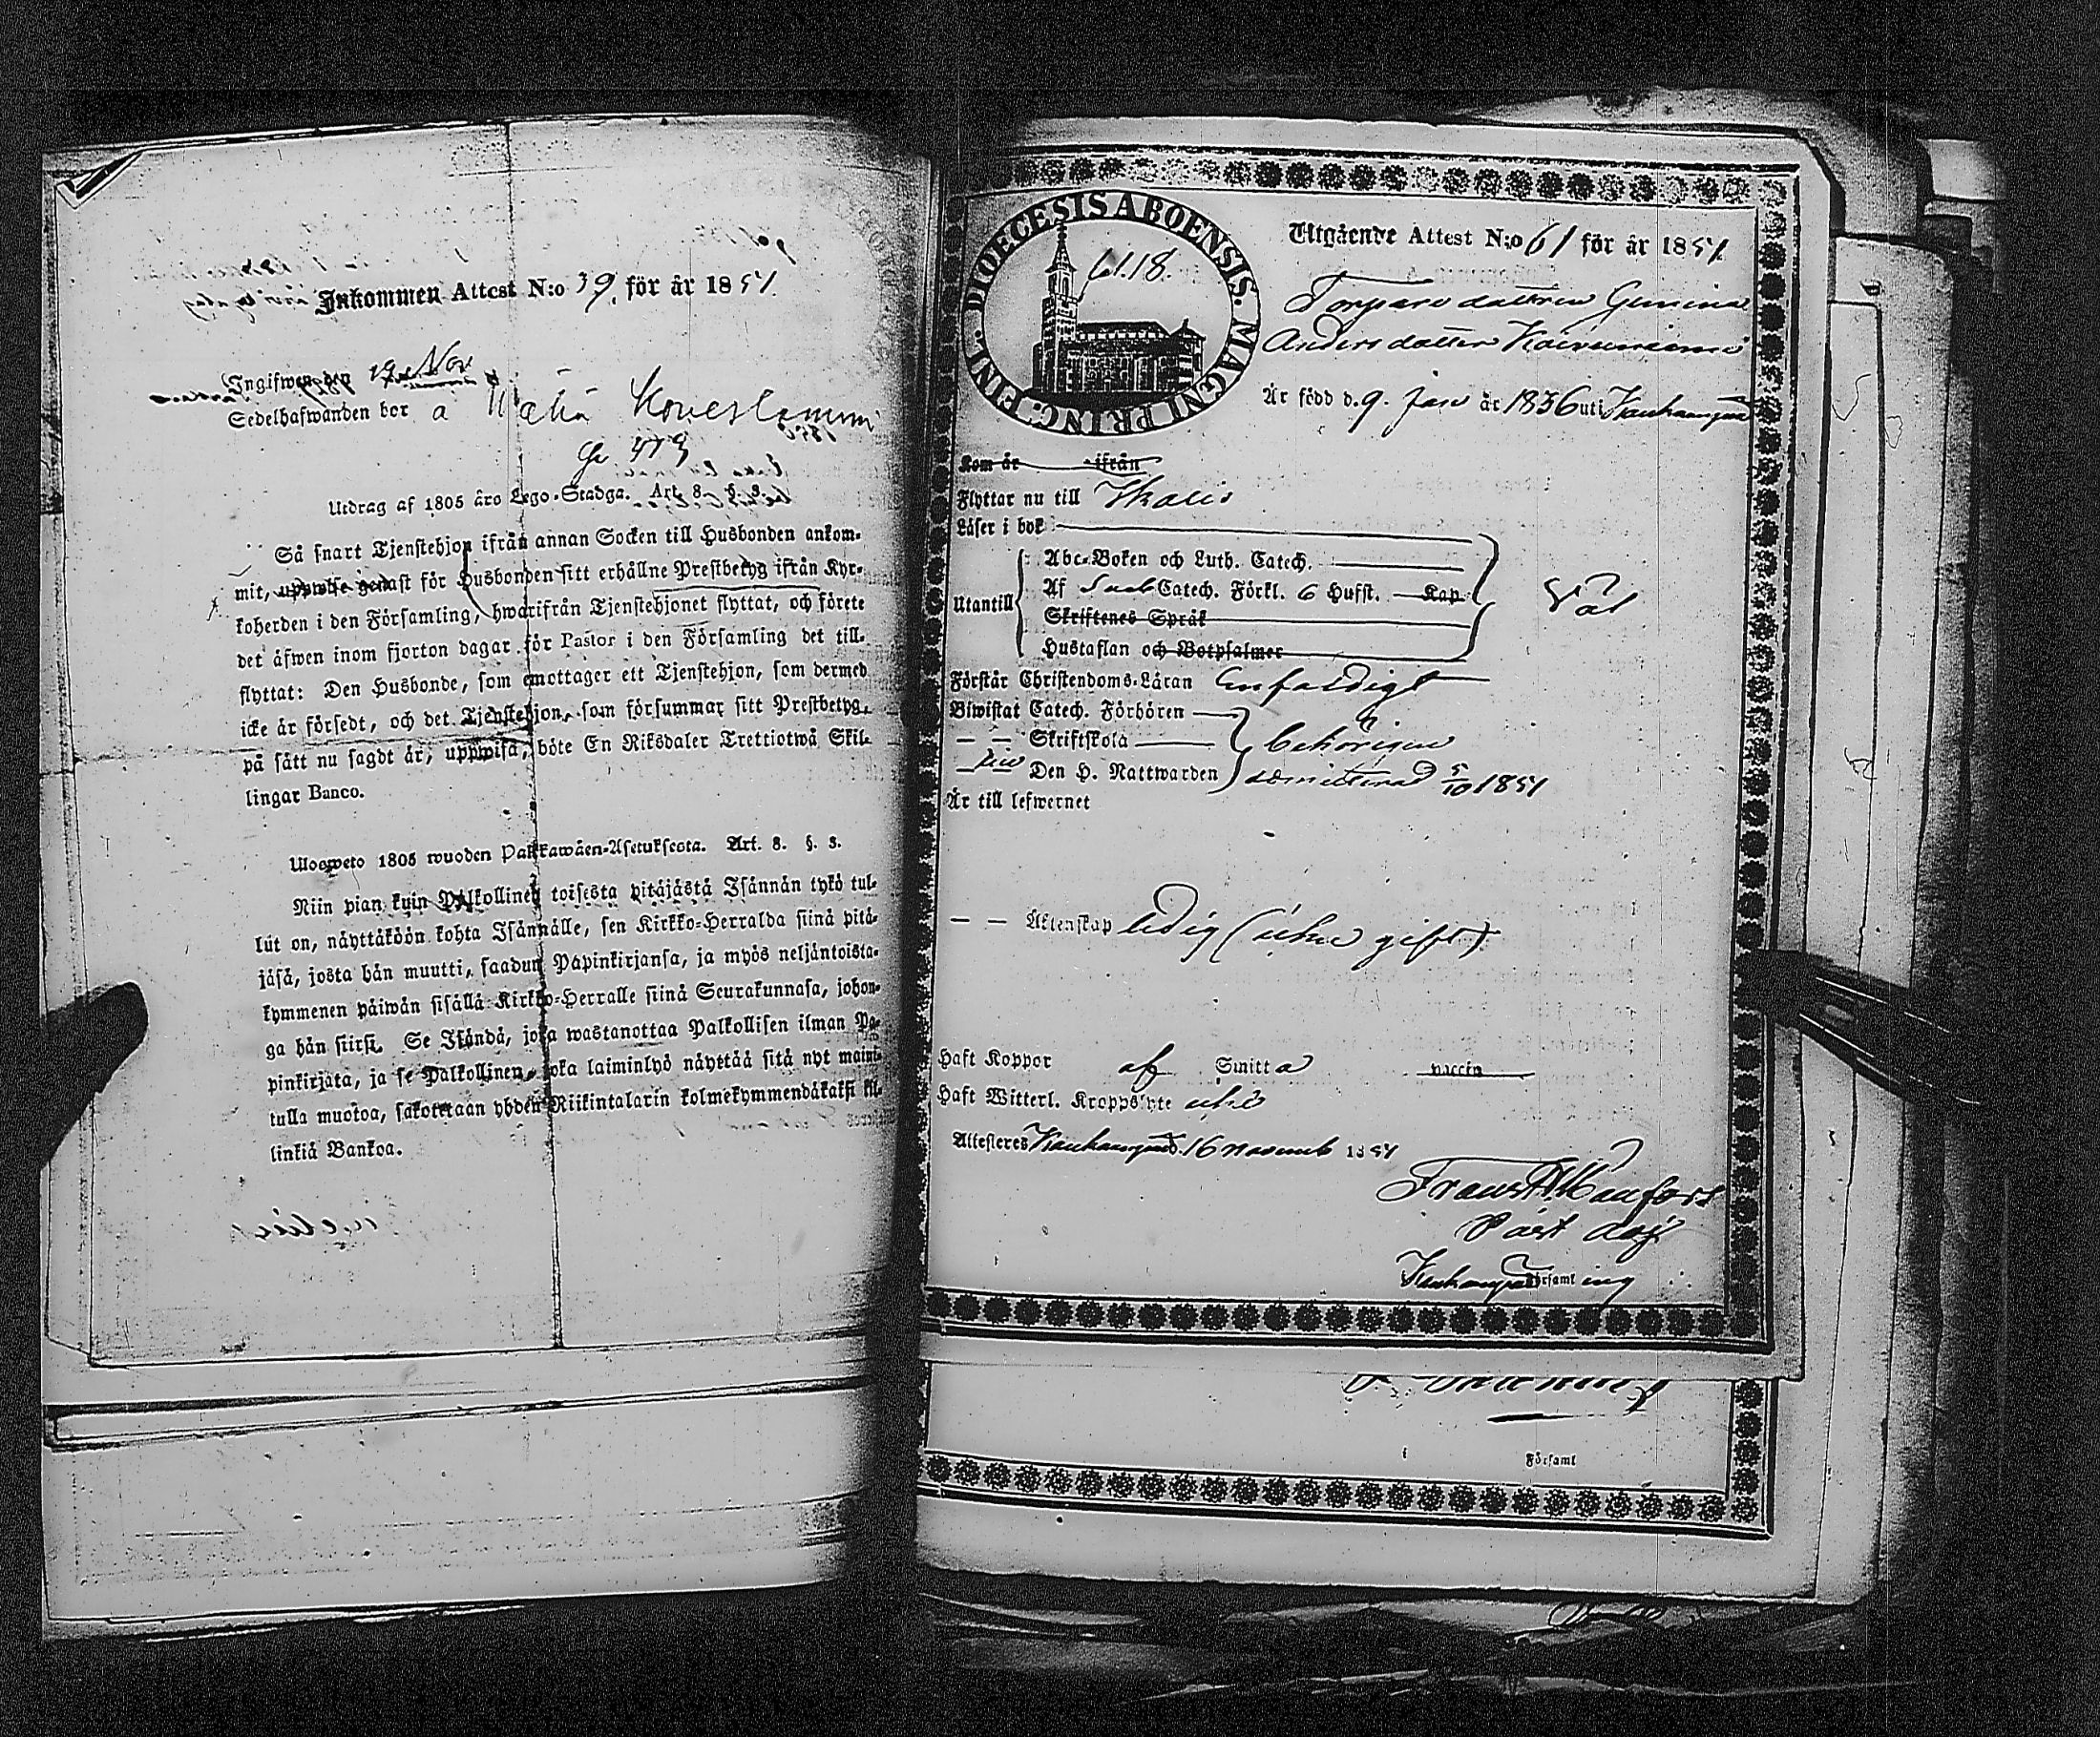 Inkommen Attest N:o 39. för år 1851
Ingifwen den 19 Nov
Sedelhafwanden bor å
Utdrag af 1805 års Lego-Stadga. Art. 8. §. 3.
Så snart Tjenstehjon ifrån annan Socken till Husbonden ankom-
mit, uppwise genast för Husbonden sitt erhållne Prestbetyg ifrån Kyr-
koherden i den Församling, hwarifrån Tjenstehjonet flyttat, och förete
det äfwen inom fjorton dagar för Pastor i den Församling det till-
flyttat: Den Husbonde, som emottager ett Tjenstehjon, som dermed
icke är försedt, och det Tjenstehjon, som försummar sitt Prestbetyg,
på sätt nu sagdt är, uppwisa, böte En Riksdaler Trettiotwå Skil-
lingar Banco.
Ulosweto 1805 wuoden Palkkawäen-Asetuksesta. Art. 8. §. 3.
Niin pian kuin Palkollinen toisesta pitäjästä Isännän tykö tul-
lut on, näyttäköön kohta Isännälle, sen Kirkko-Herralda siinä pitä-
jäsä, josta hän muutti, saadun Papinkirjansa, ja myös neljäntoista-
kymmenen päiwän sisällä Kirkko-Herralle siinä Seurakunnasa, johon-
ga hän siirsi. Se Isändä, joka wastanottaa Palkollisen ilman Pa-
pinkirjata, ja se Palkollinen, joka laiminlyö näyetää sitä nyt maini-
tulla muotoa, sakotetaan yhden Riikintalarin kolmekymmendäkaksi kil-
linkiä Bankoa.
DIOECESIS ABOENSIS. MAGNI PRINC. FINL.
61.18.
Utgående Attest N:o 61 för år 1851
Torpare dottren
Anders dotter
Är född d. 9. Jan år 1836 uti
Kom år ifrån
Flyttar nu till Ikalis
Läser i bok
Utantill
Abc-Boken och Luth. Catech.
Af Catech. Förkl. 6 Hufst. Kap.
Skriftenes Språk
Hustaflan och Botpsalmer
Väl
Förstår Christendoms-Läran Enfaldigt
Biwistat Catech. Förhören
— — Skriftskola
behörigen
Den H. Nattwarden admitterad 5/10 1851
Är till lefwernet
— — Äktenskap ledig (icke gift)
Haft Koppor af Smitta vaccin
Haft Witterl. Kroppslyte icke
Attesteres 16 Novemb 1851
Past
Församling
Församl